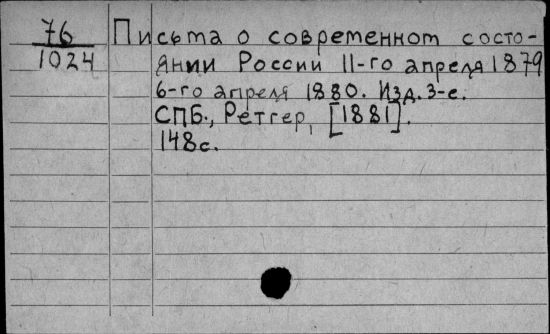 76
1024
Письма о современном состо-
янии России 11-го апреля 1879
6-го апреля 1880. Изд. 3-е.
СПБ., Ретгер, [1881].
148с.